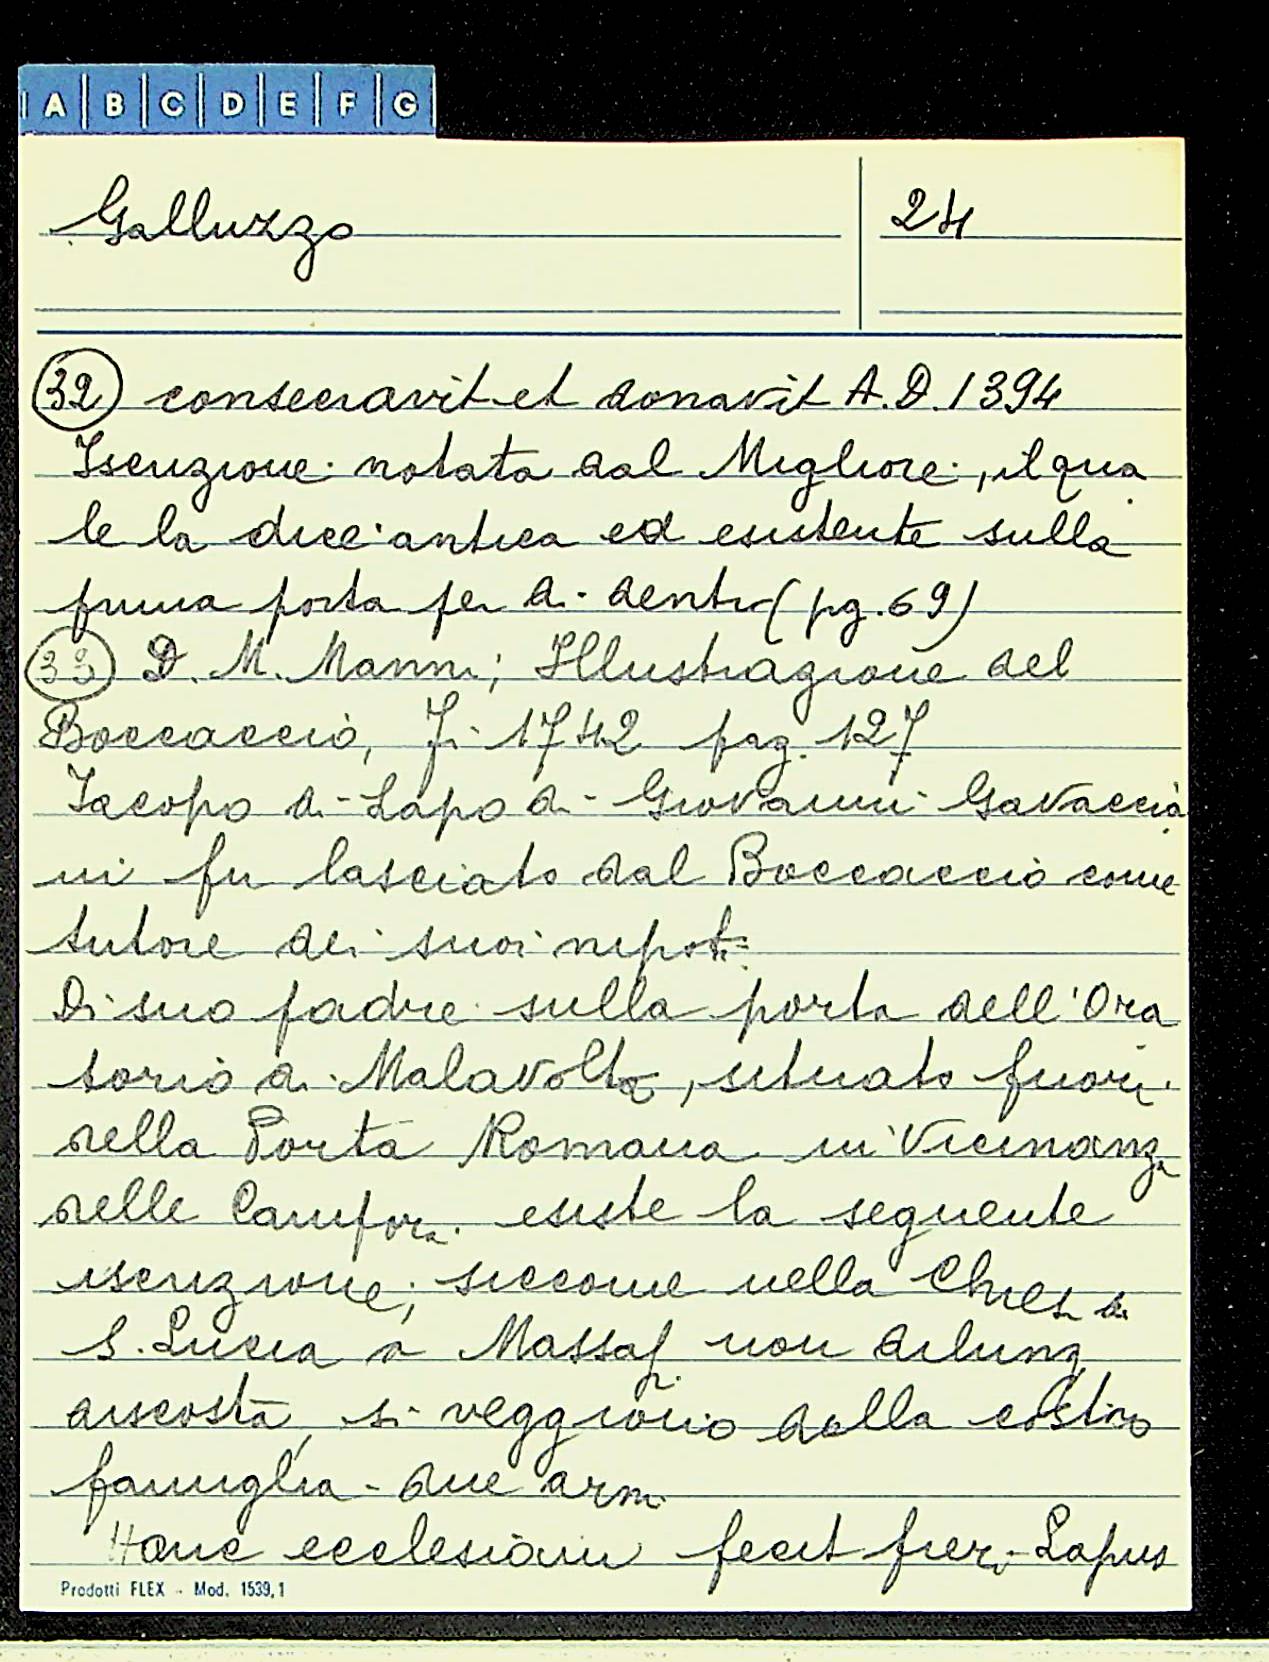 A B C D E F G
Galluzzo 24
(32) consecravit et donavit A.D. 1394
Iscrizione notata dal Migliore, il qua
le la dice antica ed esistente sulla
prima porta per di dentro (pg. 69)
(33) D. M. Manni; Illustrazione del
Boccaccio, Fi 1742 pag. 127
Iacopo di Lapo di Giovanni Gavaccia
ni fu lasciato dal Boccaccio come
tutore dei suoi nipoti
Di suo padre sulla porta dell'Ora
torio di Malavolta, situato fuori
della Porta Romana in vicinanza
delle Campora esiste la seguente
iscrizione; siccome nella Chiesa di
S. Lucia a Massap. non dilung
discosta, si veggiono della
famiglia due armi
Hanc ecclesiam fecit fieri Lapus
Prodotti FLEX - Mod. 1539,1